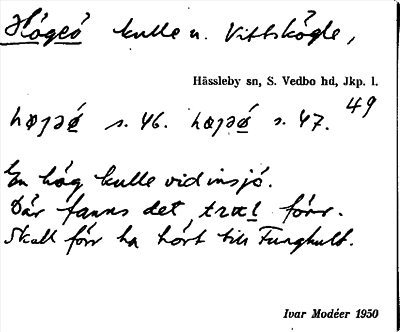 Högeö kulle n. Vittskögle,
Hässleby sn, S. Vedbo hd, Jkp. l.
49
s. 46. s. 47.
En hög kulle vid insjö.
Där fanns det förr.
Skall förr ha hört till Funghult.
Ivar Modéer 1950